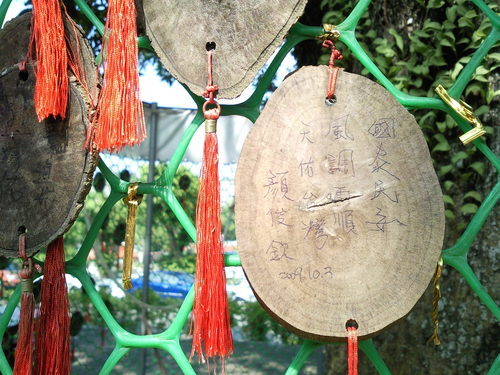 國泰民安
風調雨順
天佑台灣
顏俊欽
2009.10.3